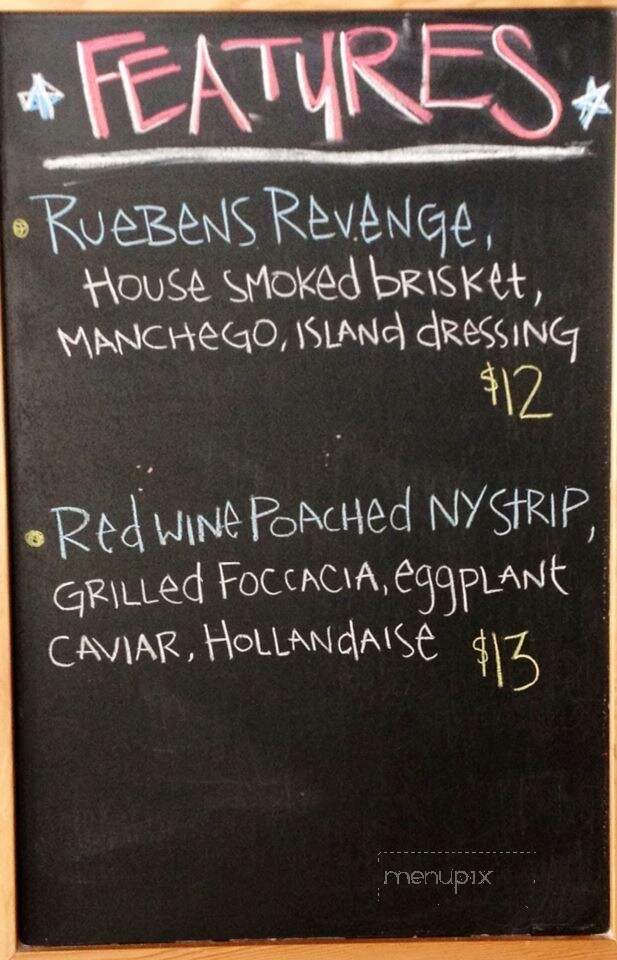 FEATURES
RUEBENS REVENGE,
HOUSE SMOKED BRISKET,
MANCHEGO, ISLAND DRESSING
$12
RED WINE POACHED NY STRIP,
GRILLED FOCCACIA, EGGPLANT
CAVIAR, HOLLANDAISE $13
menupix